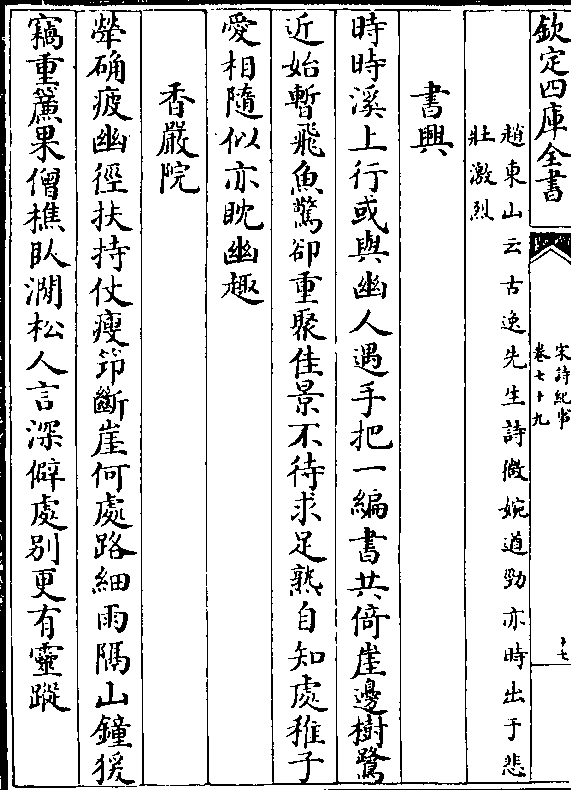 欽定四庫全書
宋詩紀事
卷七十九
十七
趙東山云古逸先生詩微婉遒勁亦時出于悲
壯激烈
書興
時時溪上行或與幽人遇手把一編書共倚崖邊樹鷺
近始暫飛魚驚卻重聚佳景不待求足熟自知處稚子
愛相隨似亦眈幽趣
香嚴院
犖确疲幽徑扶持仗瘦筇斷崖何處路細雨隔山鐘猨
竊重簾果僧樵臥澗松人言深僻處别更有靈蹤